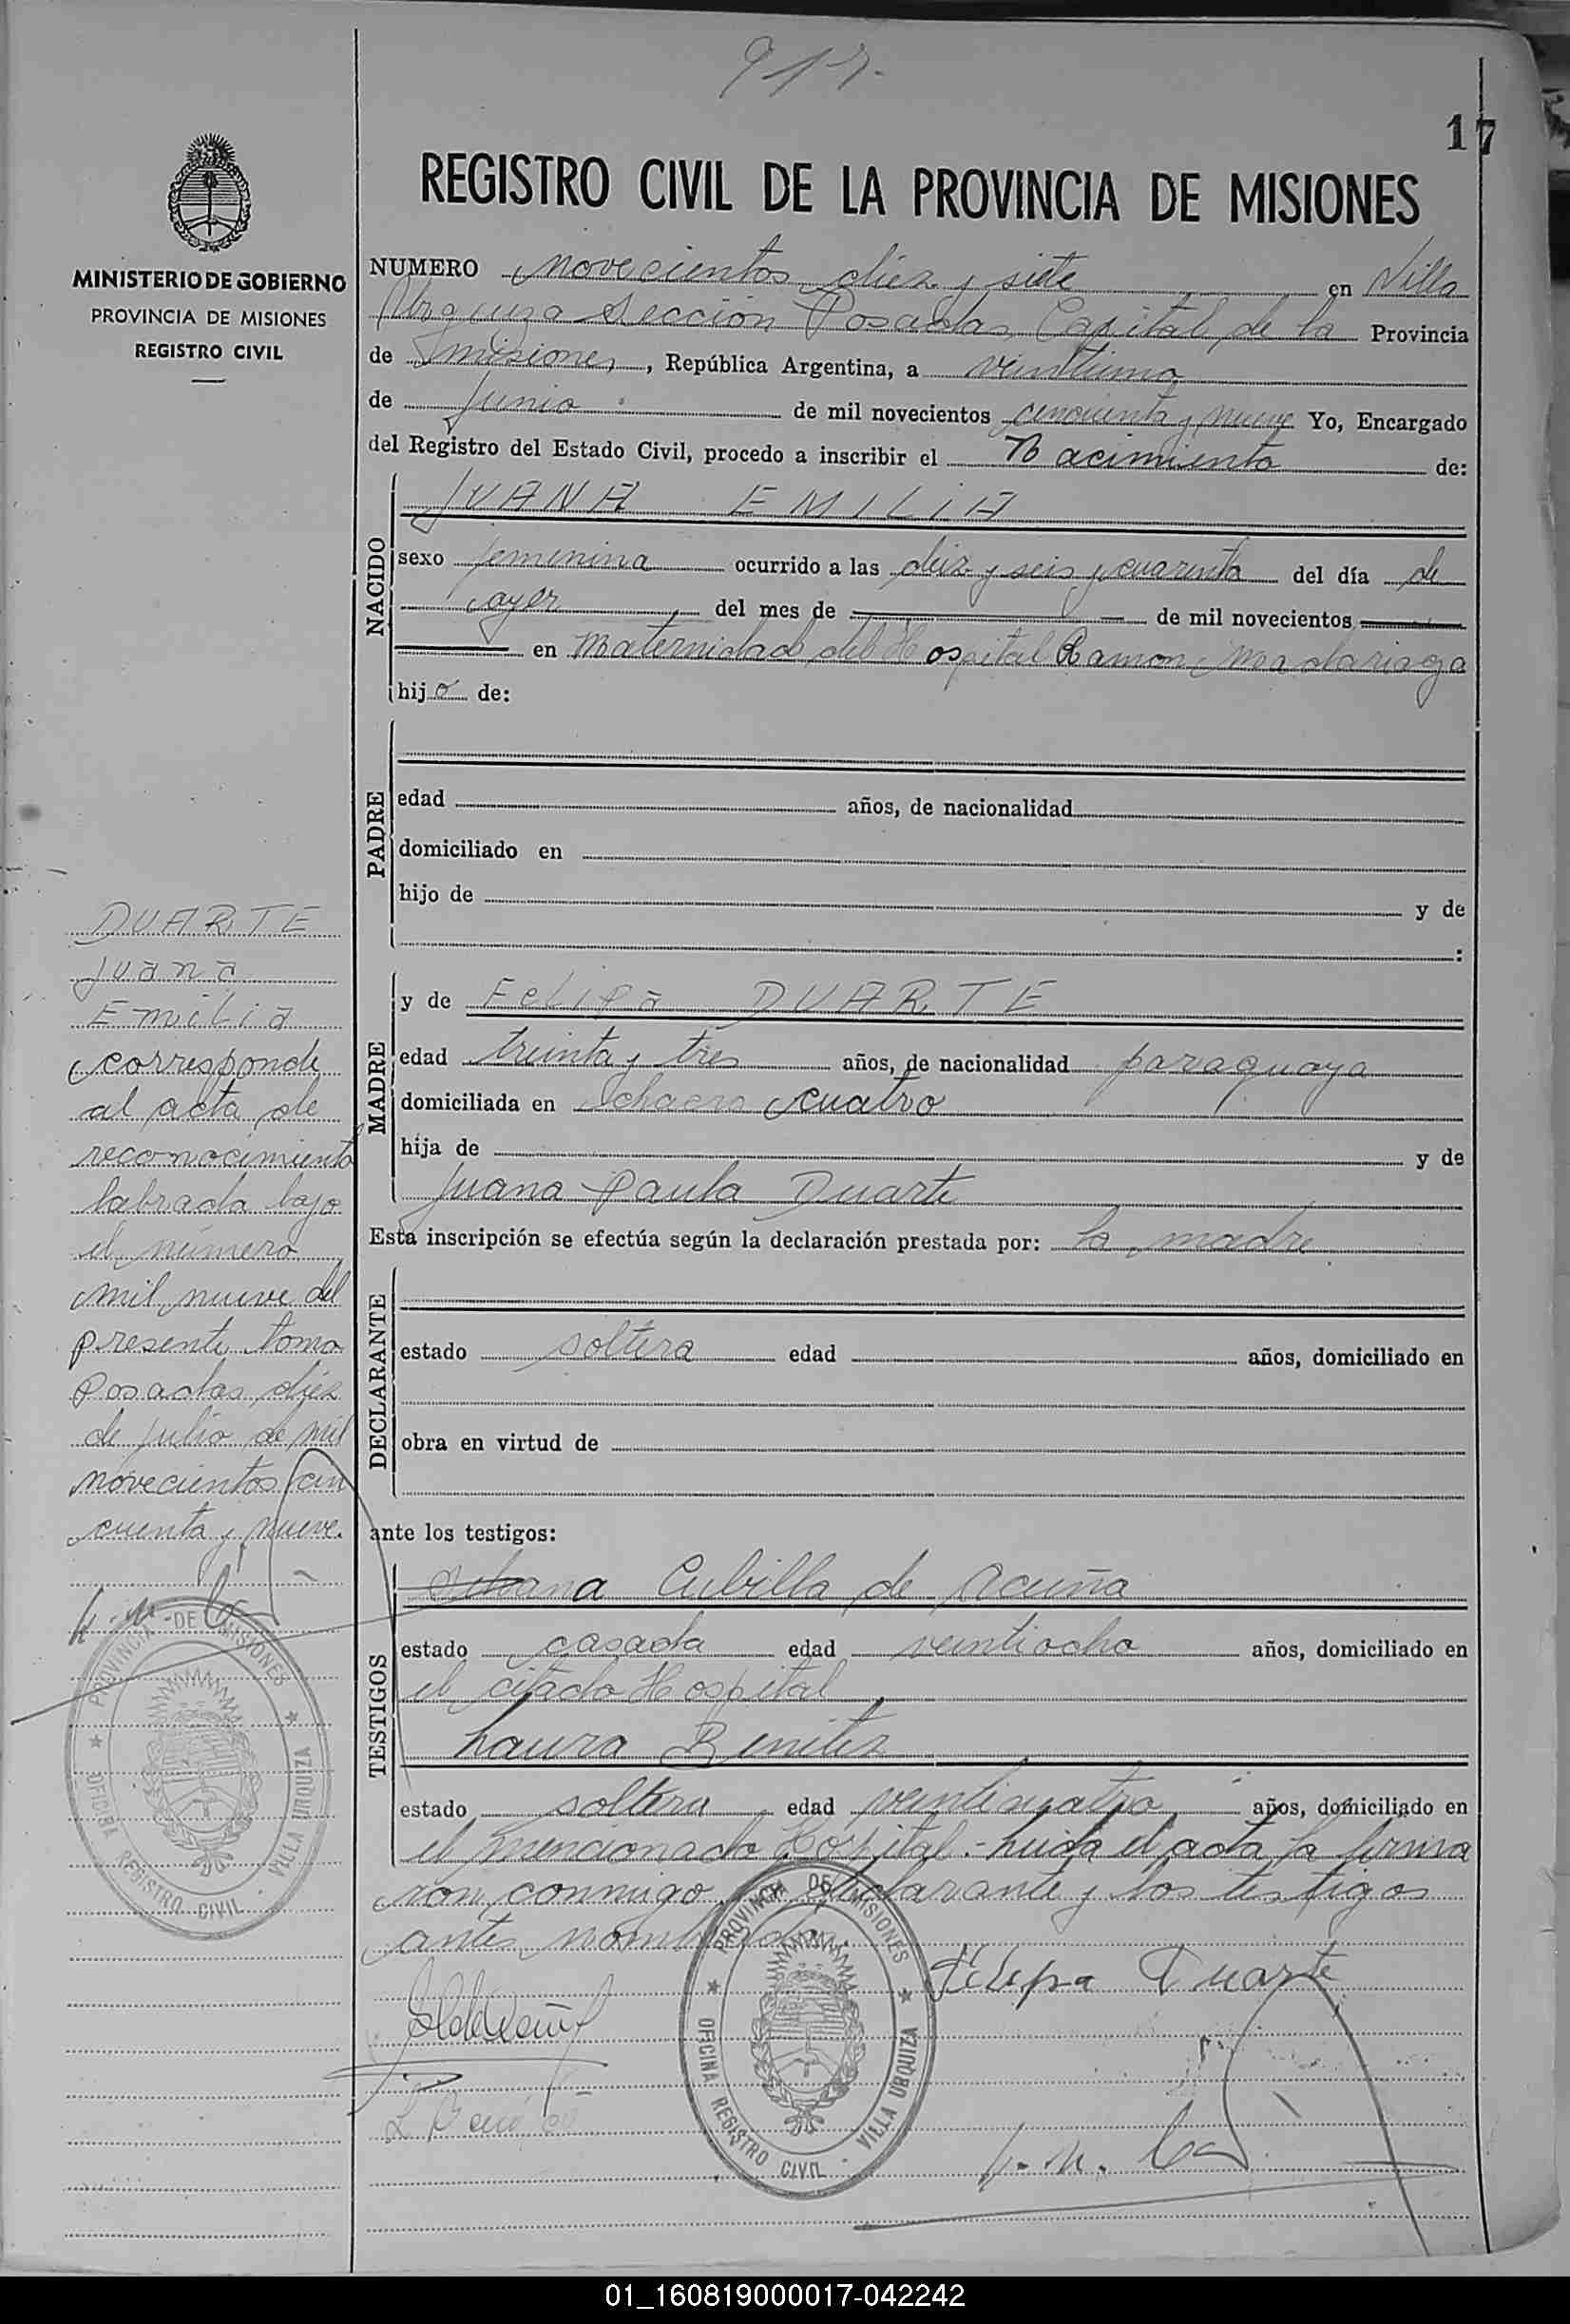 917.
17
REGISTRO CIVIL DE LA PROVINCIA DE MISIONES
MINISTERIO DE GOBIERNO
PROVINCIA DE MISIONES
REGISTRO CIVIL
NUMERO novecientos diez y siete en Villa
Urquiza Sección Posadas, Capital de la Provincia
de Misiones, República Argentina, a veintiuno
de Junio de mil novecientos cincuenta y nueve Yo, Encargado
del Registro del Estado Civil, procedo a inscribir el Nacimiento de:
NACIDO
JUANA EMILIA
sexo femenina ocurrido a las diez y seis y cuarenta del día de
ayer del mes de de mil novecientos
en Maternidad del Hospital Ramon Madariaga
hijo de:
PADRE
edad años, de nacionalidad
domiciliado en
hijo de y de
:
DUARTE
Juana
Emilia
corresponde
al acta de
reconocimiento
labrada bajo
el número
mil nueve del
presente tomo
Posadas, diez
de julio de mil
novecientos cin
cuenta y nueve.
MADRE
y de Felipa DUARTE
edad treinta y tres años, de nacionalidad paraguaya
domiciliada en cuatro
hija de y de
Juana Paula Duarte
Esta inscripción se efectúa según la declaración prestada por: la madre
DECLARANTE
estado soltera edad años, domiciliado en
obra en virtud de
ante los testigos:
TESTIGOS
Cubilla de Acuña
estado casada edad veintiocho años, domiciliado en
el citado Hospital
Laura Benitez
estado soltera edad veinticuatro años, domiciliado en
el mencionado Hospital.- Leída el acta la firma
ron conmigo, la declarante y los testigos
antes nombrados.
Felepa Duarte
PROVINCIA DE MISIONES
OFICINA REGISTRO CIVIL - VILLA URQUIZA
PROVINCIA DE MISIONES
OFICINA REGISTRO CIVIL - VILLA URQUIZA
01_160819000017-042242